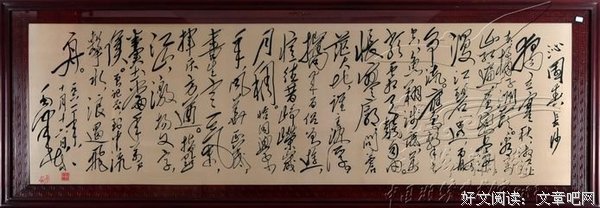 沁園春 长沙
独立寒秋湘江
北去橘子洲头看万
山红遍层林尽染
漫江碧透百舸
争流鹰击长空
鱼翔浅底万类
霜天竞自由
怅寥廓问苍
茫大地谁主沉浮
携来百侣曾游
忆往昔峥嵘岁
月稠恰同学少
年风华正茂
書生意气
挥斥方遒指點
江山激扬文字
粪土当年万户
侯曾记否到中流
擊水浪遏飞
舟
毛泽东
好文阅读：文章吧网